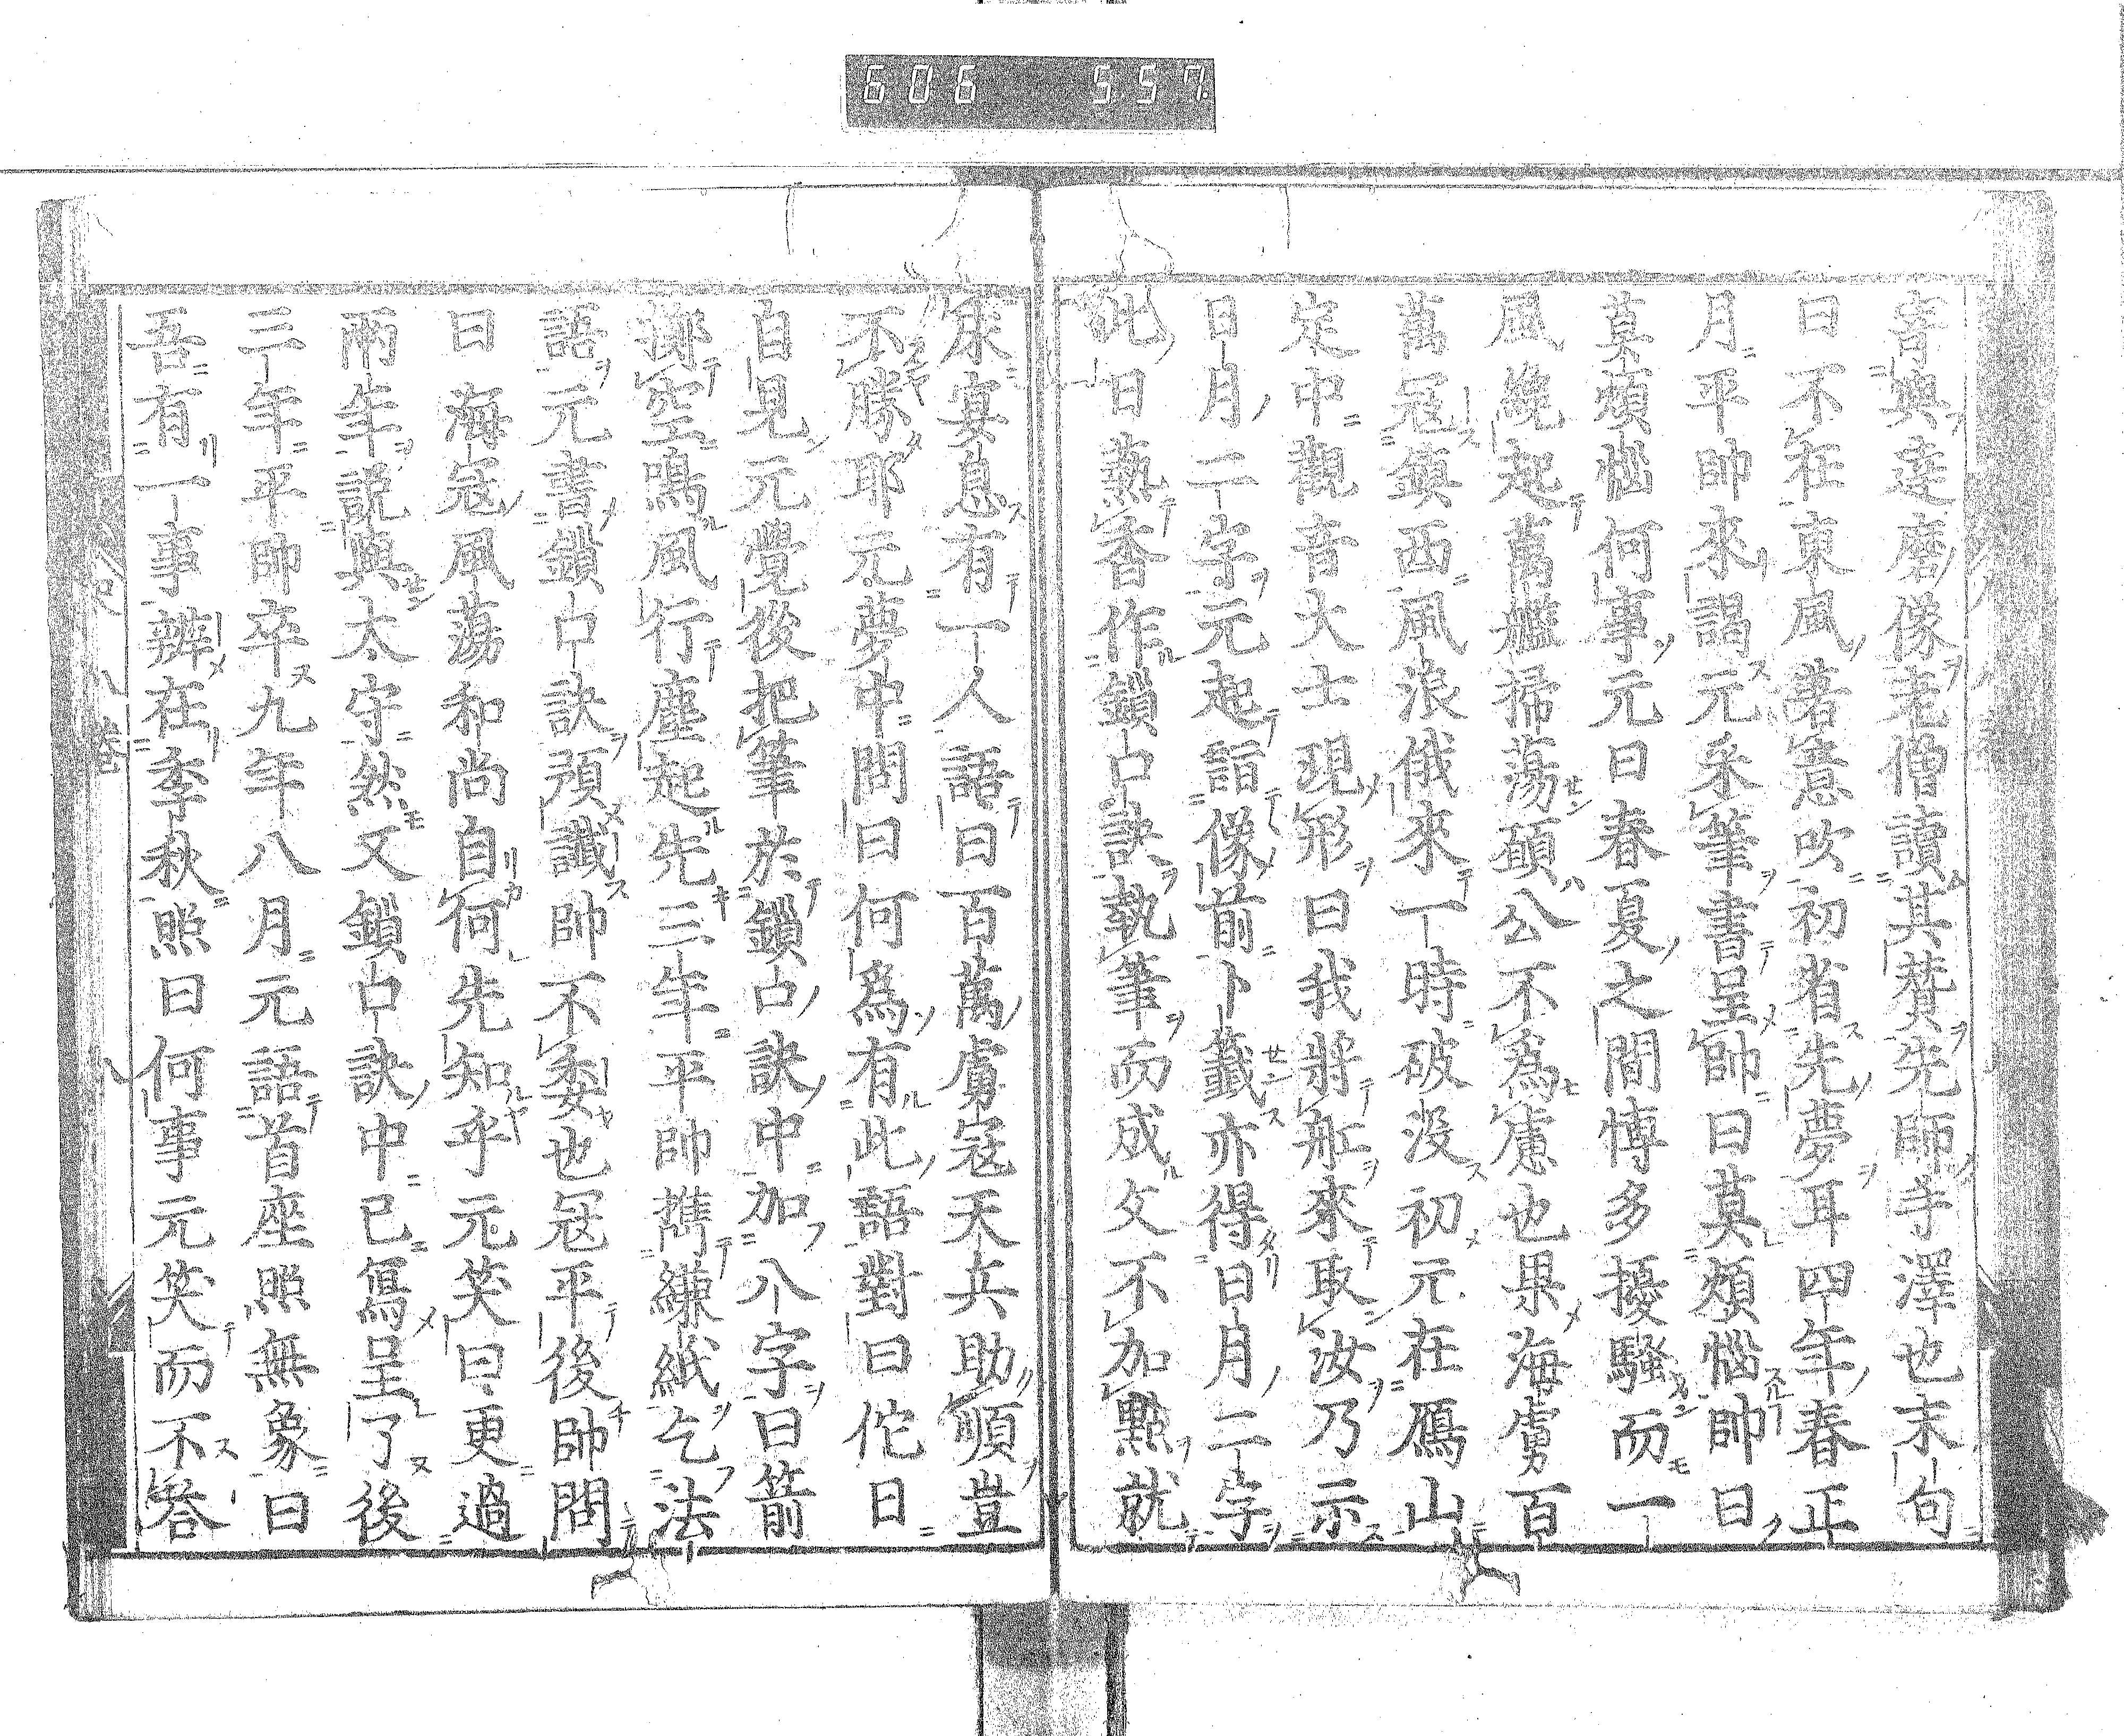 606 557
寄與達磨像老僧讀其賛先師手澤也末句
曰不在東風著意吹初省先夢耳四年春正
月平帥來謁元采筆書呈帥曰莫煩惱帥曰
莫煩惱何事元曰春夏之間博多擾騷而一
風纔起萬艦掃蕩碩公不爲慮也果海虜百
萬冦鎮西風浪俄來一時破没初元在鴈山
定中觀音大士現形曰我將舩來取汝乃示
日月二字元起詣像前卜籤亦得日月二字
此日熱香作鎖口訣執筆而成文不加點就
床宴息有一人語曰百萬虜冦天兵助順豈
不勝耶元夢中問曰何爲有此語對曰佗日
自見元覺後把筆於鎖口訣中加八字曰箭
擲空鳴風行塵起先三年平帥擕縑紙乞法
語元書鎖口訣預讖帥不委也冦平後帥問
曰海冦風蕩和尚自何先知乎元笑曰更過
兩年説與太守然又鎖口訣中已寫呈了後
三年平帥卒九年八月元語首座照無象曰
吾有一事辦在季秋照曰何事元笑而不答